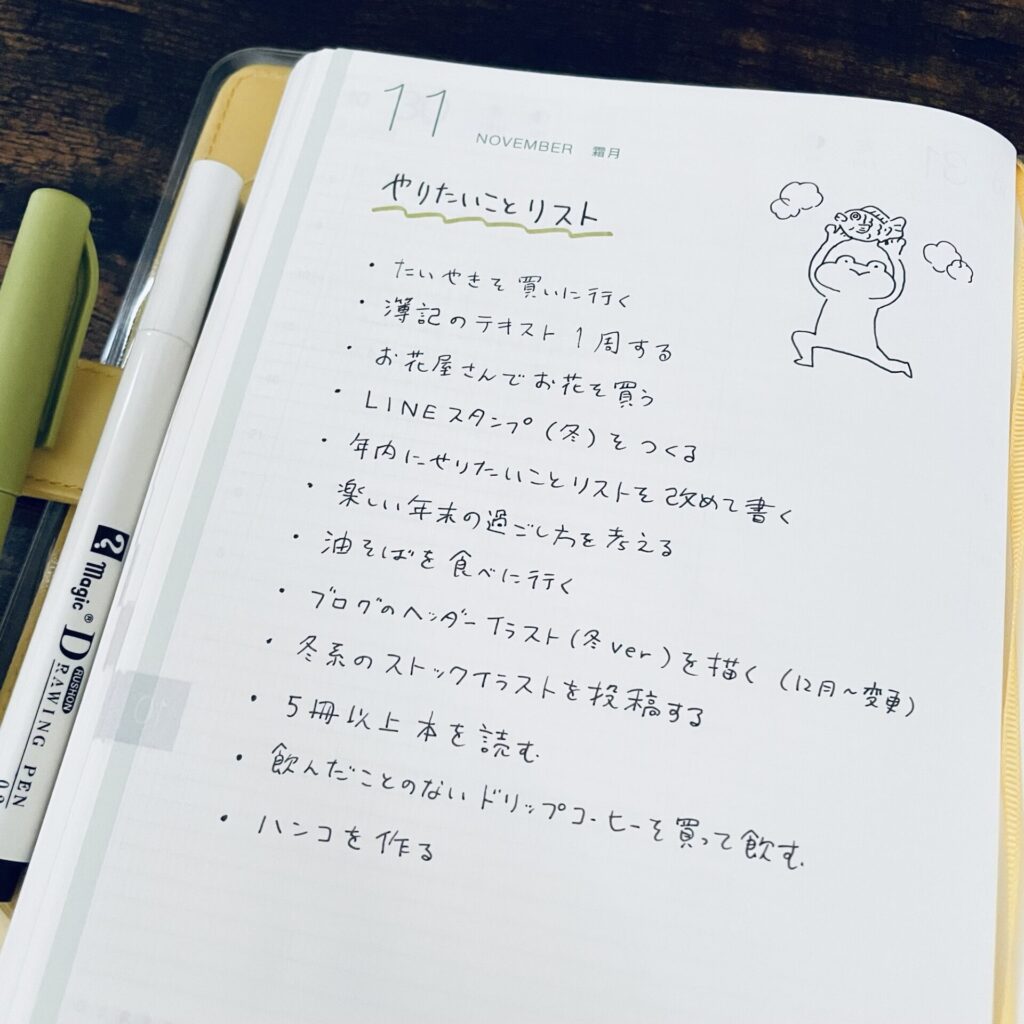 11
NOVEMBER 霜月
やりたいことリスト
・たいやきを買いに行く
・簿記のテキスト1周する
・お花屋さんでお花を買う
・LINEスタンプ(冬)をつくる
・年内にやりたいことリストを改めて書く
・楽しい年末の過ごし方を考える
・油そばを食べに行く
・ブログのヘッダーイラスト(冬ver)を描く(12月〜変更)
・冬系のストックイラストを投稿する
・5冊以上本を読む
・飲んだことのないドリップコーヒーを買って飲む
・ハンコを作る
Magic®
RUSHON
DRAWING PEN